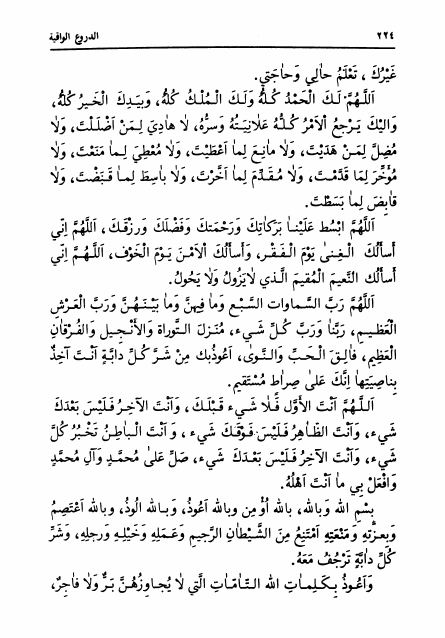 ٢٢٤ الدروع الواقية
غَيْرُكَ ، تَعْلَمُ حالِي وَحاجَتي.
اَللّهُمَّ لَكَ الْحَمْدُ كُلُّهُ وَلَكَ الْمُلْكُ كُلُّهُ، وَبِيَدِكَ الْخَيرُ كُلُّهُ،
وَاليْكَ يَرْجِعُ الْاَمْرُ كُلُّهُ عَلانِيَتُهُ وَسرُّهُ، لا هادِيَ لِمَنْ اَضْلَلْتَ، وَلا
مُضِلَّ لِمَنْ هَدَيْتَ، وَلا مانِعَ لِما اَعْطَيْتَ، وَلا مُعْطِيَ لِما مَنَعْتَ، وَلا
مُؤخِّرَ لِمَا قَدَّمْتَ، وَلا مُقَدِّمَ لِما اَخَّرْتَ، وَلا باسِطَ لِما قَبَضْتَ، وَلا
قابِضَ لِما بَسَطْتَ.
اَللّهُمَّ ابْسُط عَلَيْنا بَرَكاتِكَ وَرَحْمَتكَ وَفَضْلَكَ وَرزْقَكَ ، اَللّهُمَّ إنّي
أسألُكَ الْغِنىٰ يَوْمَ الْفَقْرِ، وَأسألُكَ الْاَمْنَ يَوْمَ الْخَوْفِ، اَللّهُمَّ إنّي
أسألُك النَّعيمَ الْمُقيمَ الَّذي لايَزُولُ وَلا يَحُولُ.
اَللّهُمَّ رَبَّ السَّماوات السَّبْع وَما فِيهنَّ وَما بَيْنَهُنَّ وَربَّ الْعَرْشِ
الْعَظيمِ، رَبَّنا وَرَبَّ كُلِّ شَيء، مُنزلَ التَّوراة وَالأنْجيل وَالفُرْقانِ
العَظِيمِ، فالِقَ الْحَبِّ وَالنَّوىٰ، اَعُوذُبكَ مِنْ شَرِّ كُلِّ دابَّةٍ اَنْتَ آخِذٌ
بِناصِيَتِها إنَّكَ عَلىٰ صِراطٍ مُسْتَقيم.
اَللّهُمَّ اَنْتَ الأوَّل فَلا شَيء قَبْلَكَ ، وَاَنْتَ الآخِرُ فَلَيْسَ بَعْدَكَ
شَيء، وَاَنْتَ الظّاهِرُ فَلَيْسَ فَوْقَكَ شَيء ، وَاَنْتَ الْباطِنُ تَخْبُرُ كُلَّ
شَيء، وَاَنْتَ الآخِرُ فَلَيْسَ بَعْدَكَ شَيء، صَلِّ عَلىٰ مُحَمدٍ وَآلِ مُحمَّدٍ
وَافْعَلْ بِي ما اَنْتَ اَهْلُهُ.
بِسْمِ الله وَبالله، بالله اُؤمِن وبالله اَعُوذُ، وَبالله الُوذُ، وبالله اَعْتَصِمُ
وَبعزَّتهِ وَمَنْعَتِهِ اَمْتَنِعُ مِنَ الشَّيْطانِ الرَّجيمِ وَعَمَلِهِ وَخَيْلِهِ وَرجلِهِ، وَشَرِّ
كُلِّ دابَّةٍ تَرْجُفُ مَعَهُ.
وَاَعُوذُ بكَلِماتِ الله التَّامّاتِ الَّتي لا يُجاوِزُهُنَّ بَرٌّ وَلا فاجِرٌ،